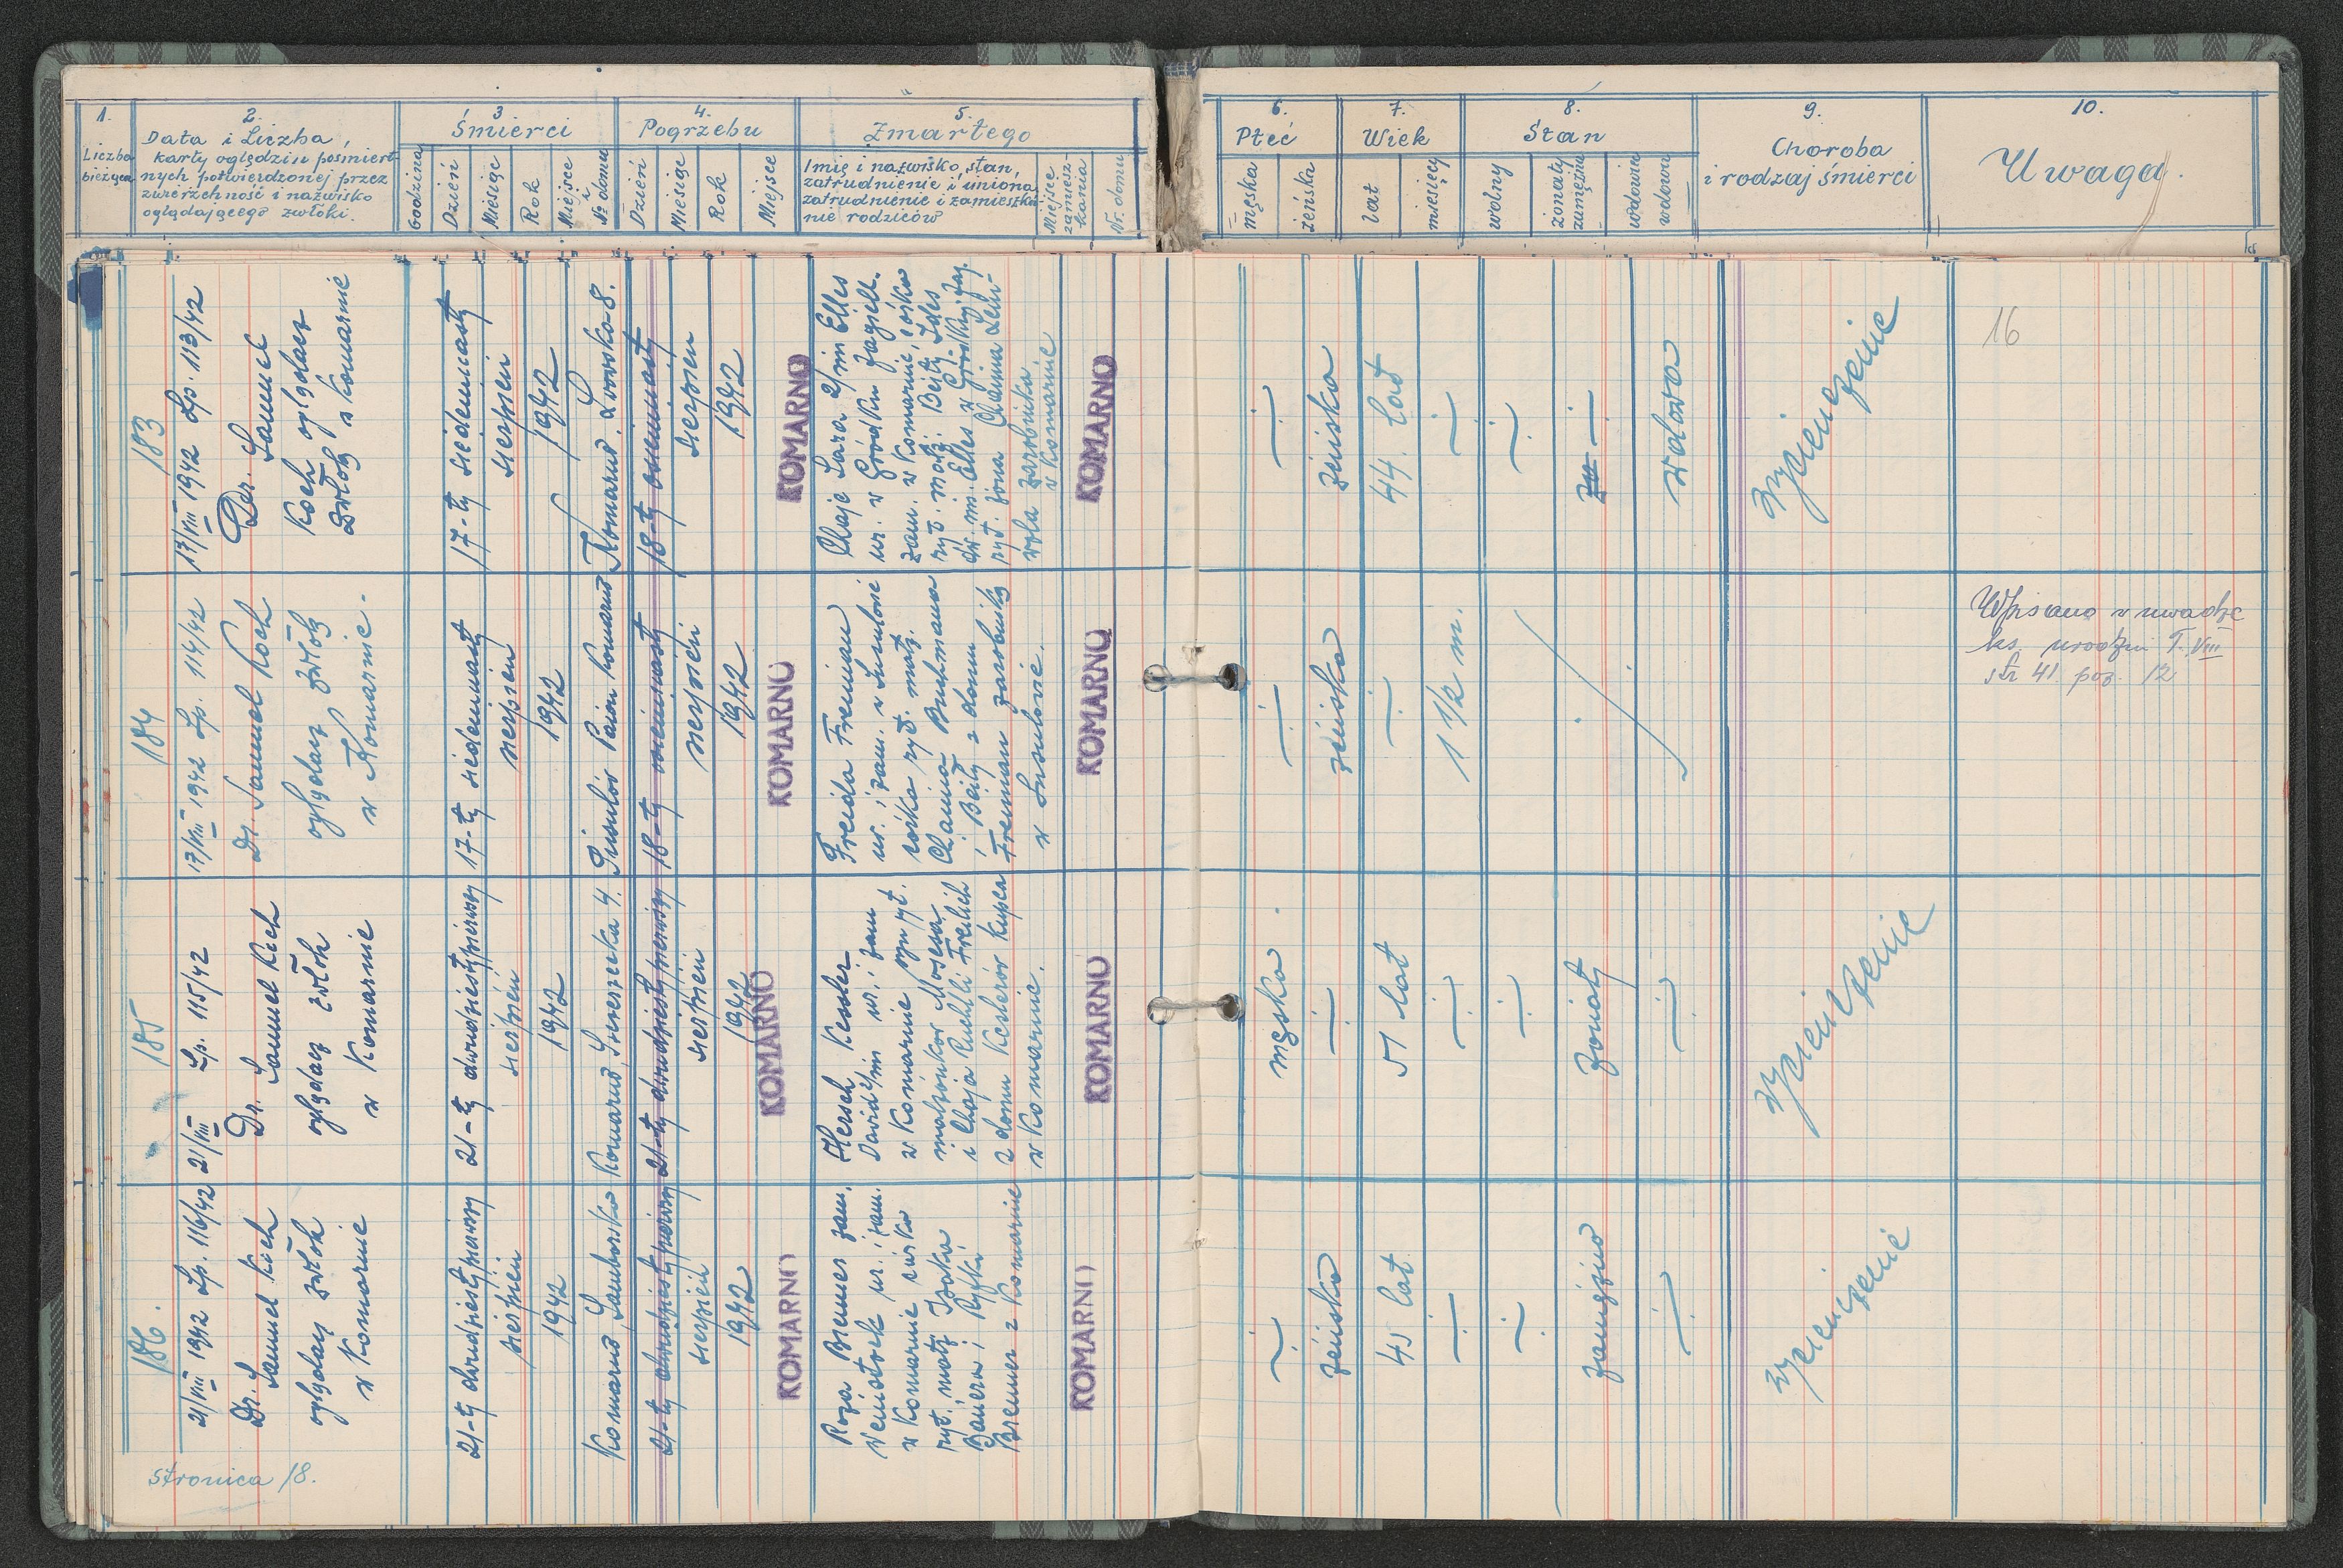 1.
Liczba
bieżąca
2.
Data i Liczba
karty oględzin pośmiert-
nych potwierdzonej przez
zwierzchność i nazwisko
oglądającego zwłoki.
3
Śmierci
Godzina
Dzień
Miesiąc
Rok
Miejsce
i
Nr domu
4.
Pogrzebu
Dzień
Miesiąc
Rok
Miejsce
5.
Zmarłego
Imię i nazwisko, stan,
zatrudnienie i imiona,
zatrudnienie i zamieszka-
nie rodziców
Miejsce
zamiesz-
kania
Nr. domu
6.
Płeć
męska
żeńska
7.
Wiek
lat
miesięcy
8.
Stan
wolny
żonaty
zamężna
wdowiec
wdowa
9.
Choroba
i rodzaj śmierci
10.
Uwaga.
183
17/VIII 1942 Lp. 113/42
Dr. Samuel
Koch oglądacz
zwłok w Komarnie
17-ty siedemnasty
sierpień
1942
Komarno Lwowska 8.
18-ty osiemnasty
sierpień
1942
KOMARNO
Chaje Sara 2/im Elles
ur. w Gródku Jagiell.
zam. w Komarnie, córka
ryt. małż.
ryt. żona Chaima
zarobnika
w Komarnie
KOMARNO
żeńska
44 lat
wdowa
Wycieńczenie
16
184
17/VIII 1942 Lp. 114/42
Dr. Samuel Koch
oglądacz zwłok
w Komarnie.
17-ty siedemnasty
sierpień
1942
18-ty osiemnasty
sierpień
1942
KOMARNO
Freida Freiman
ur. i zam. w
córka ryt. małż.
Chaima Buchmana
i Beily z domu
Freiman zarobnika
w
KOMARNO
żeńska
1 1/2 m.
Wpisano w uwadze
ks. urodzin T. VIII
str 41. poz. 12
185
21/VIII Lp. 115/42
Dr. Samuel Koch
oglądacz zwłok
w Komarnie
21-ty dwudziestypierwszy
sierpień
1942
Komarno 4.
21-ty dwudziestypierwszy
sierpień
1942
KOMARNO
Hersch Kessler
Dawid 2/im ur. i zam
w Komarnie syn ryt.
małżonków Mosesa
i Chaja Ruchli Freilich
z domu Keslerów kupca
w Komarnie.
KOMARNO
męska
51 lat
żonaty
Wycieńczenie
186.
21/VIII 1942 Lp. 116/42
Dr. Samuel Koch
oglądacz zwłok
w Komarnie
21-ty dwudziestypierwszy
sierpień
1942
Komarno Samborska
21-ty dwudziestypierwszy
sierpień
1942
KOMARNO
Rozia Bremer zam.
ur. i zam.
w Komarnie córka
ryt. małż. Izaka
i Ryfki
Bremer z Komarnie
KOMARNO
żeńska
45 lat
Wycieńczenie
stronica 18.